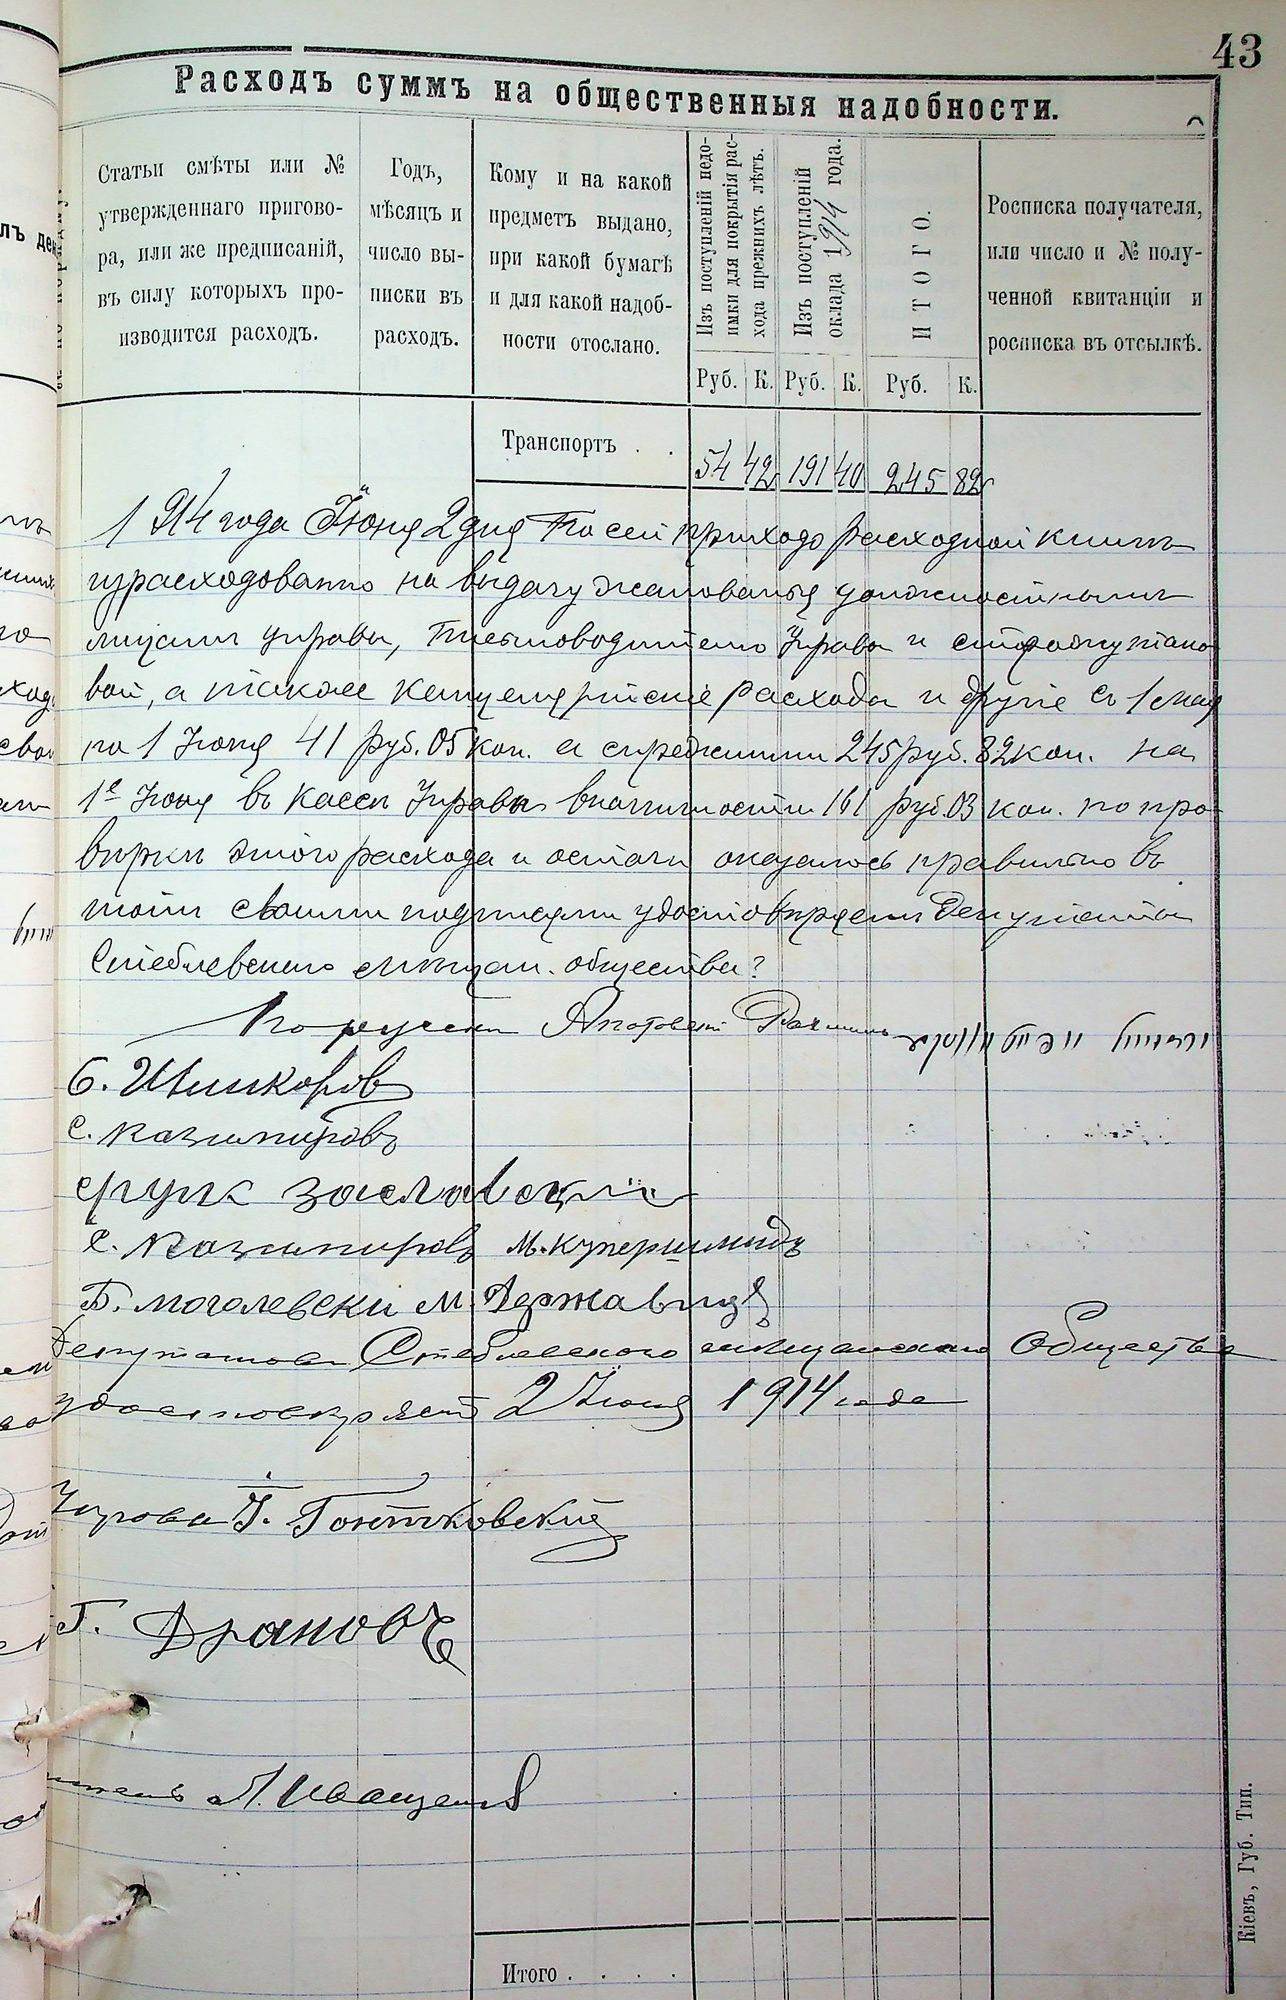 43
Расходъ суммъ на общественныя надобности.
Статьи смѣты или №
утвержденнаго пригово-
ра, или же предписаній,
въ силу которыхъ про-
изводится расходъ.
Годъ,
мѣсяцъ и
число вы-
писки въ
расходъ.
Кому и на какой
предметъ выдано,
при какой бумагѣ
и для какой надоб-
ности отослано.
Изъ поступленій недо-
имки для покрытія рас-
хода прежнихъ лѣтъ.
Изъ поступленій
оклада 1914 года.
ИТОГО.
Росписка получателя,
или число и № полу-
ченной квитанціи и
росписка въ отсылкѣ.
Руб. К. Руб. К. Руб. К.
Транспортъ . . 54 42 191 40 245 82
1914 года Июня 2 дня По сей приходо расходной книгѣ
израсходованно на выдачу жалованья должностнымъ
лицамъ управы, письмоводителю Управы и
а также канцелярскіе расходы и другіе съ 1 мая
по 1 Июня 41 руб. 05 коп. а спрежними 245 руб. 82 коп. на
1е Июня въ кассѣ Управы вналичности 161 руб. 03 коп. по про
вѣрки этого расхода и остачи оказалось правильно въ
томъ своими подписями удостовѣряемъ Депутаты
Стеблевскаго мѣщан. общества:
С. Казимировъ
Заславскій
С. Казимировъ М. Купершмидъ
Б. Моголевски М. Державецъ
Депутатовъ Стеблевского мещанского Общества
удостоверяетъ 2 Июня 1914 года
Управы И. Гонтковский
Г. Драновъ
А. Иващенко
Итого . . . .
Кіевъ, Губ. Тип.